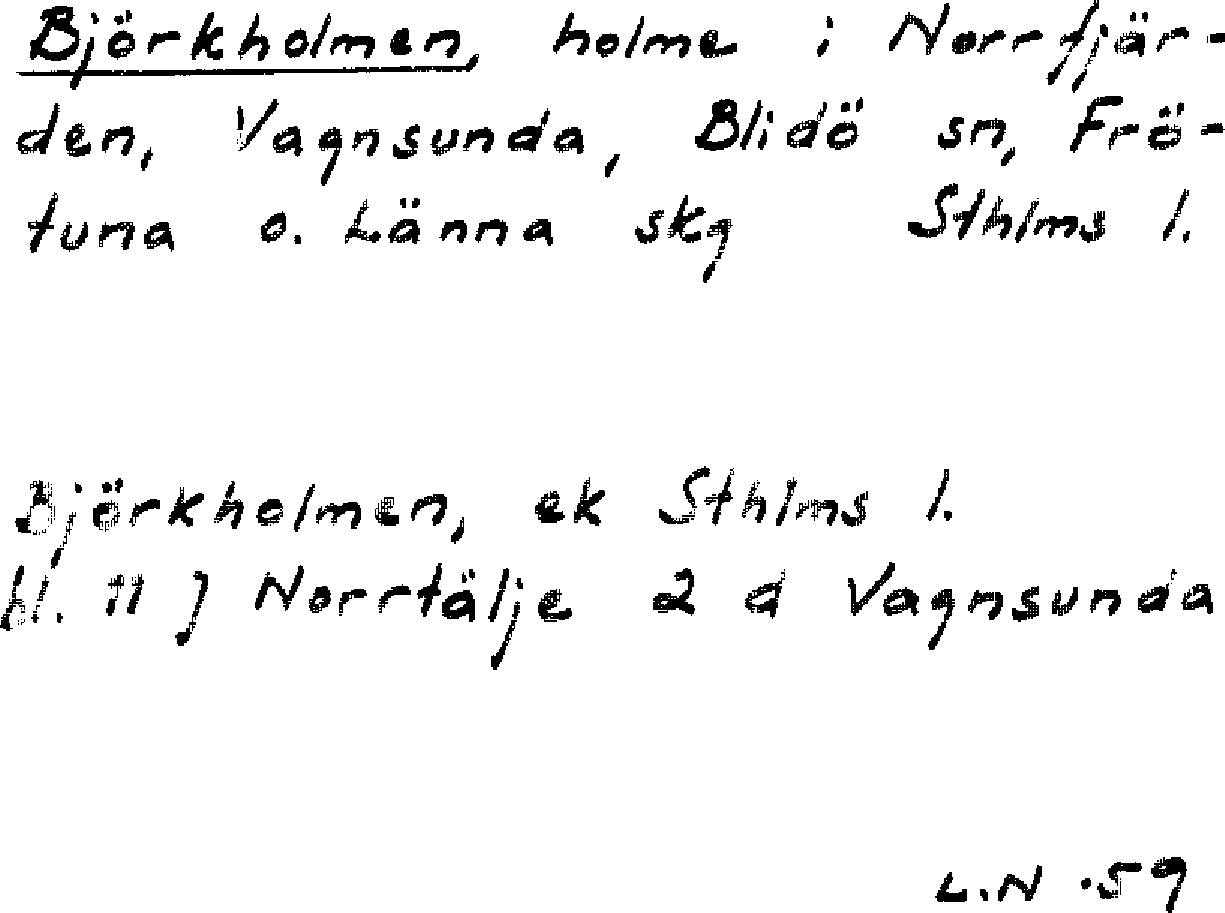 Björkholmen, holme i Norrfjär-
den, Vagnsunda, Blidö sn, Frö-
tuna o. Länna skg Sthlms l.
Björkholmen, ek Sthlms l.
bl. 11 J Norrtälje 2 d Vagnsunda
L.N .59